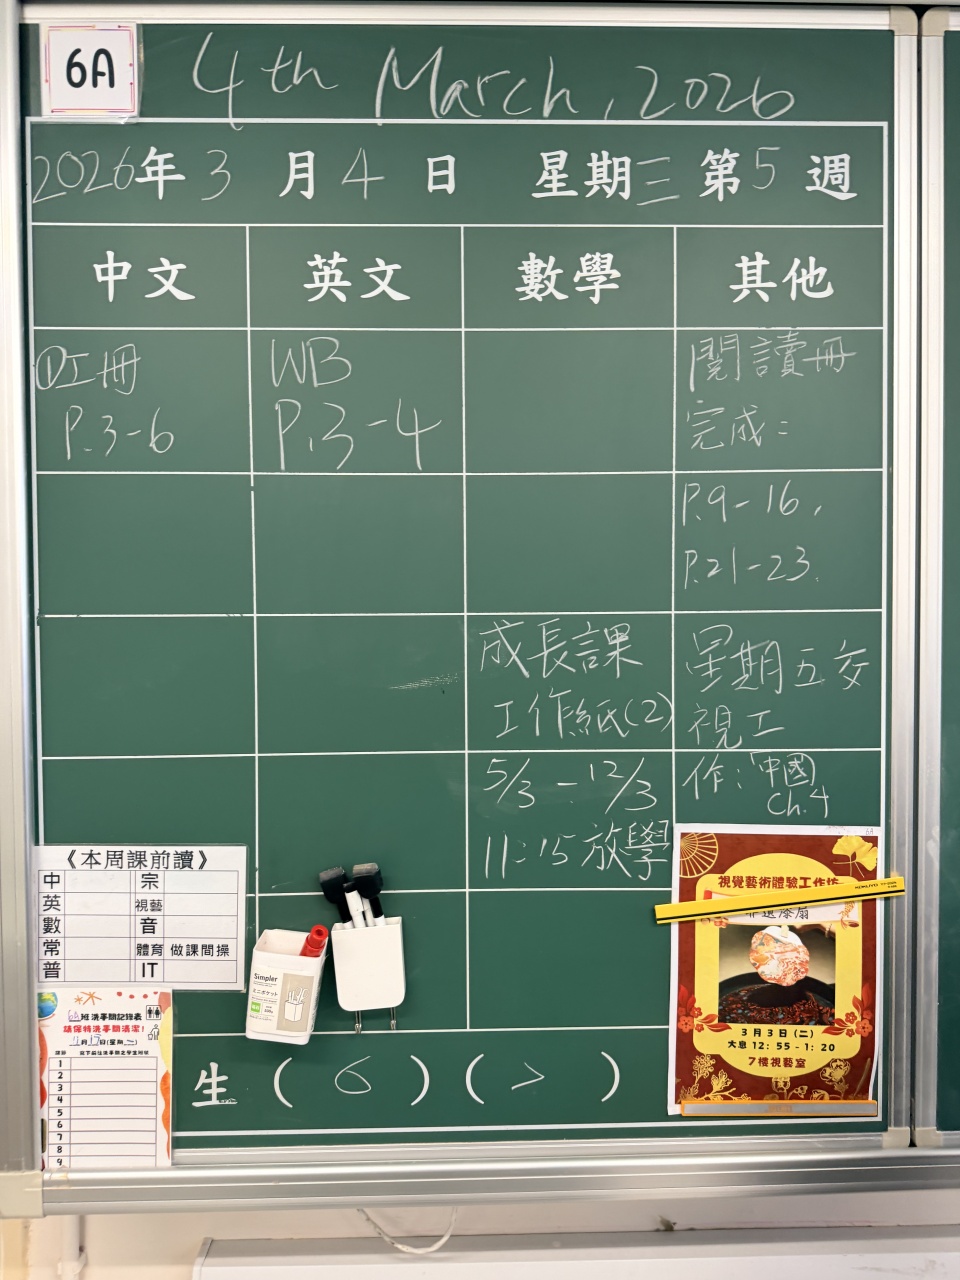 6A
4th March, 2026
2026年3月4日 星期三 第5週
中文 英文 數學 其他
工冊
P.3-6
WB
P.3-4
閱讀冊
完成:
P.9-16,
P.21-23.
成長課
工作紙(2)
星期五交
視工
5/3-12/3
11:15放學
作:「中國」
Ch.4
《本周課前讀》
中 宗
英 視藝
數 音
常 體育 做課間操
普 IT
Simpler
ミニポケット
6A班洗手間記錄表
請保持洗手間清潔!
1
2
3
4
5
6
7
8
9
生 ( 6 ) ( > )
6A
視覺藝術體驗工作坊
KOKUYO
非遺漆扇
3月3日(二)
大息12:55-1:20
7樓視藝室